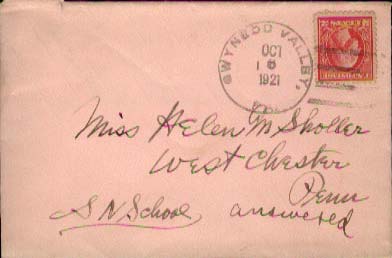 GWYNEDD VALLEY,
OCT
1921
PA.
Miss Helen M Sholler
West Chester
Penn
S N School answered